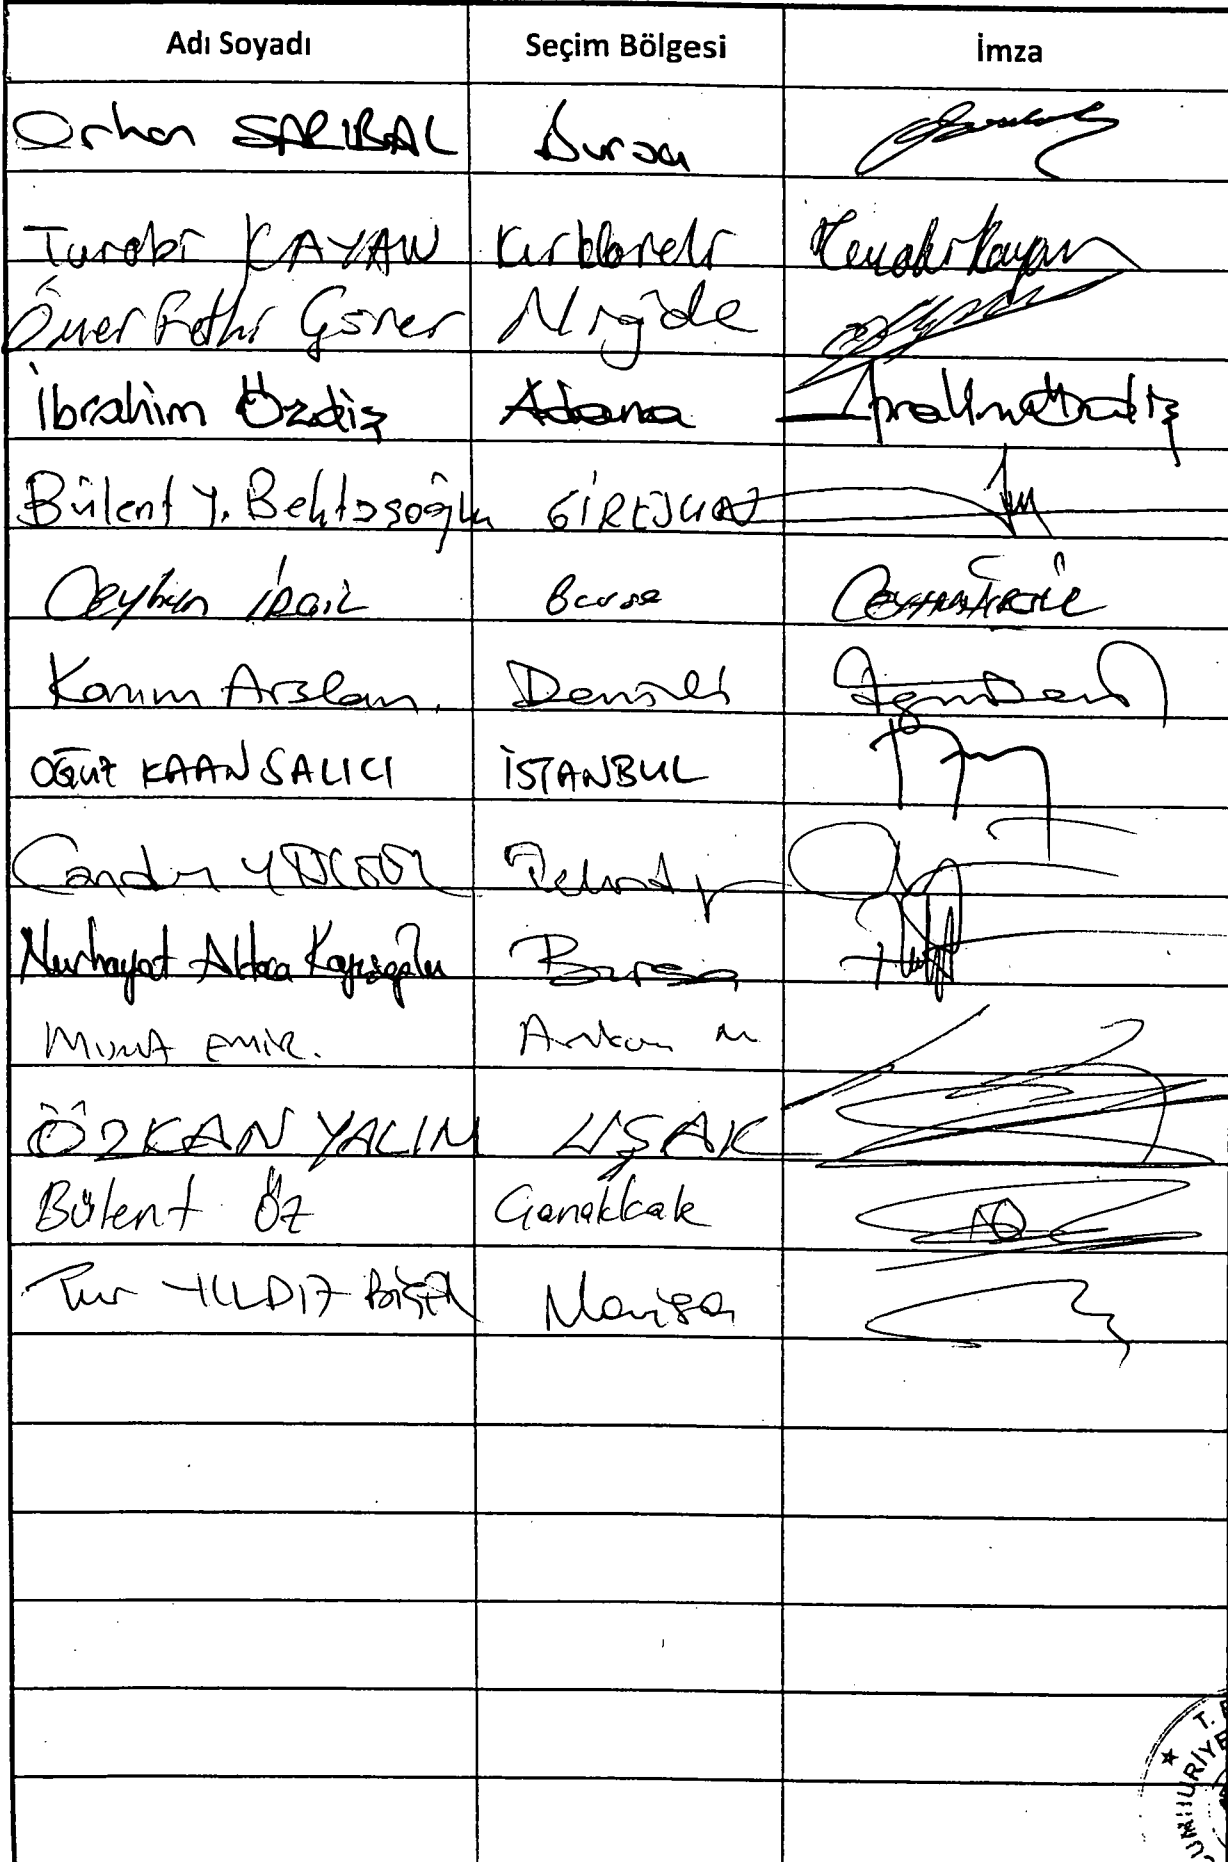 Adı Soyadı Seçim Bölgesi İmza
Orhan SARIBAL Bursa
Turabi KAYAN Kırklareli Turabi Kayan
Ömer Fethi Gürer Niğde
İbrahim Özdiş Adana İbrahim Özdiş
Bülent Y. Bektaşoğlu GİRESUN
Ceyhun İRGİL Bursa
Kazım Arslan Denizli
OĞUZ KAAN SALICI İSTANBUL
Candan YÜCEER Tekirdağ
Nurhayat Altaca Kayışoğlu Bursa
Murat EMİR. Ankara
ÖZKAN YALIM UŞAK
Bülent Öz Çanakkale
Tur YILDIZ BİÇER Manisa
T.